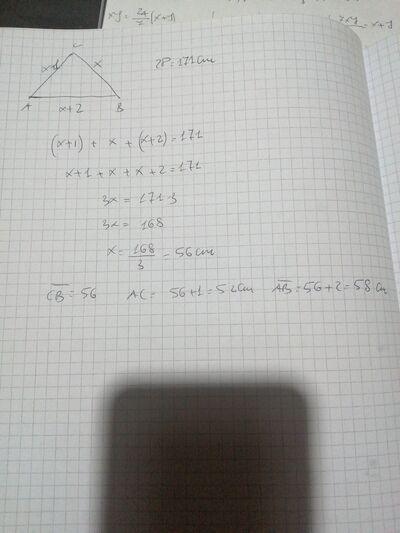 xy = 24/7 (x+y)
= x+y
C
x+1
x
2P = 171 cm
A
x+2
B
(x+1) + x + (x+2) = 171
x+1 + x + x + 2 = 171
3x = 171-3
3x = 168
x = 168/3 = 56 cm
CB = 56 AC = 56+1 = 52 cm AB = 56+2 = 58 cm